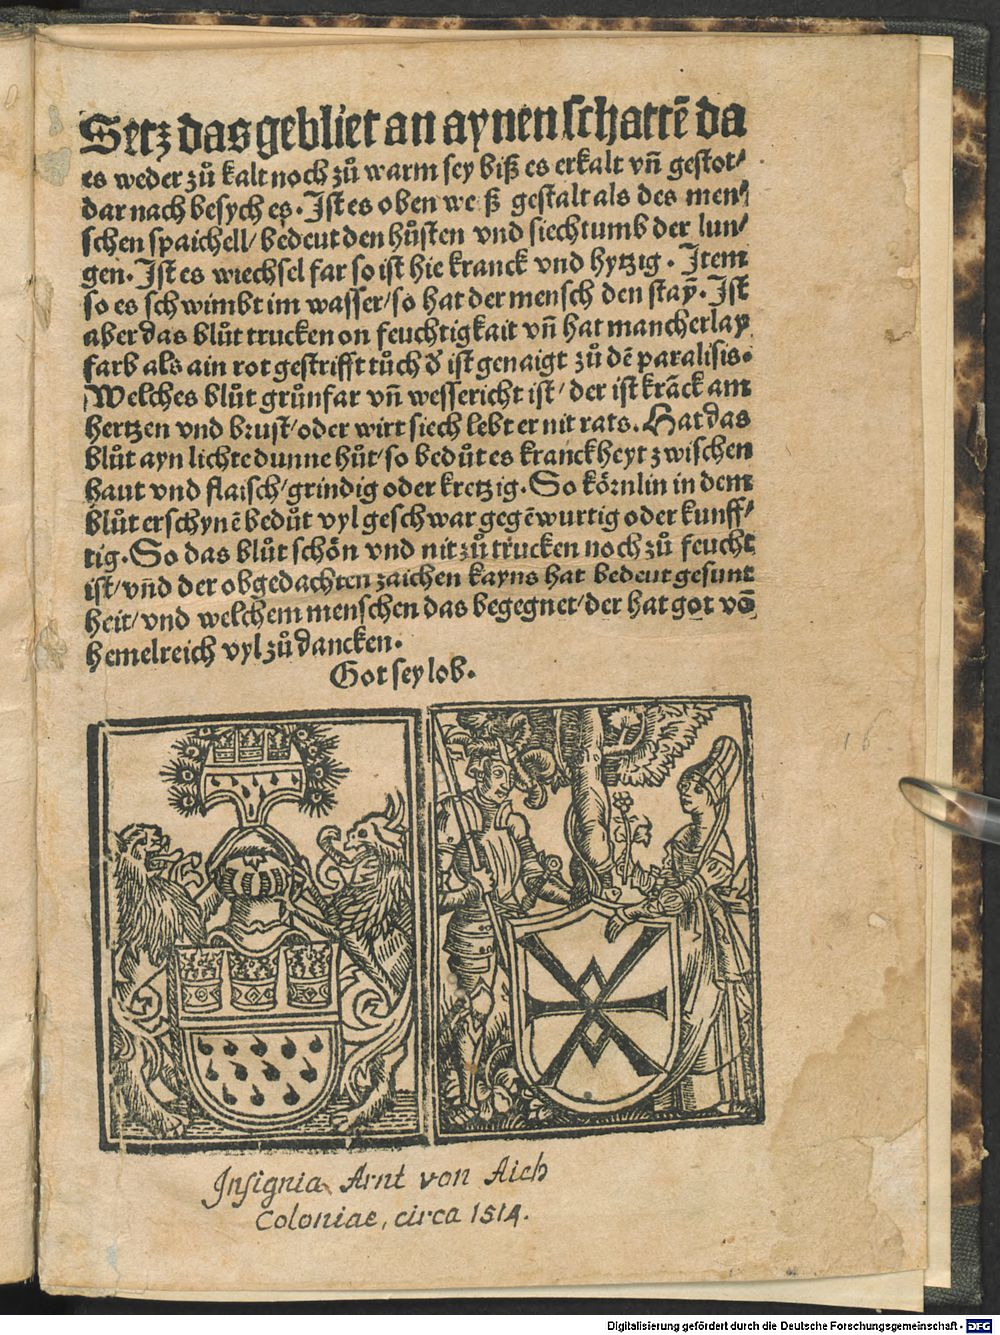 Setz das gebliet an aynen schattē da
es weder zů kalt noch zů warm sey biß es erkalt vñ gestot/
dar nach besych es. Ist es oben weiß gestalt als des men/
schen spaichell/ bedeut den hůsten vnd siechtumb der lun/
gen. Ist es wiechsel far so ist hie kranck vnd hytzig. Item
so es schwimbt im wasser/ so hat der mensch den stay̅. Ist
aber das blůt trucken on feuchtigkait vñ hat mancherlay
farb als ain rot gestrifft tůch d' ist genaigt zů dē paralisis.
Welches blůt grůnfar vñ wessericht ist/ der ist krāck am
hertzen vnd brust/ oder wirt siech lebt er nit rats. Hat das
blůt ayn lichte dunne hůt/ so bedůt es kranckheyt zwischen
haut vnd flaisch/ grindig oder kretzig. So kőrnlin in dem
blůt erschynē bedůt vyl geschwar gegēwurtig oder kunff/
tig. So das blůt schőn vnd nit zů trucken noch zů feucht
ist/ vñd der obgedachten zaichen kayns hat bedeut gesunt
heit/ vnd welchem menschen das begegnet/ der hat got vō
hemelreich vyl zů dancken.
Got sey lob.
16
Insignia Arnt von Aich
Coloniae, circa 1514.
Digitalisierung gefördert durch die Deutsche Forschungsgemeinschaft - DFG